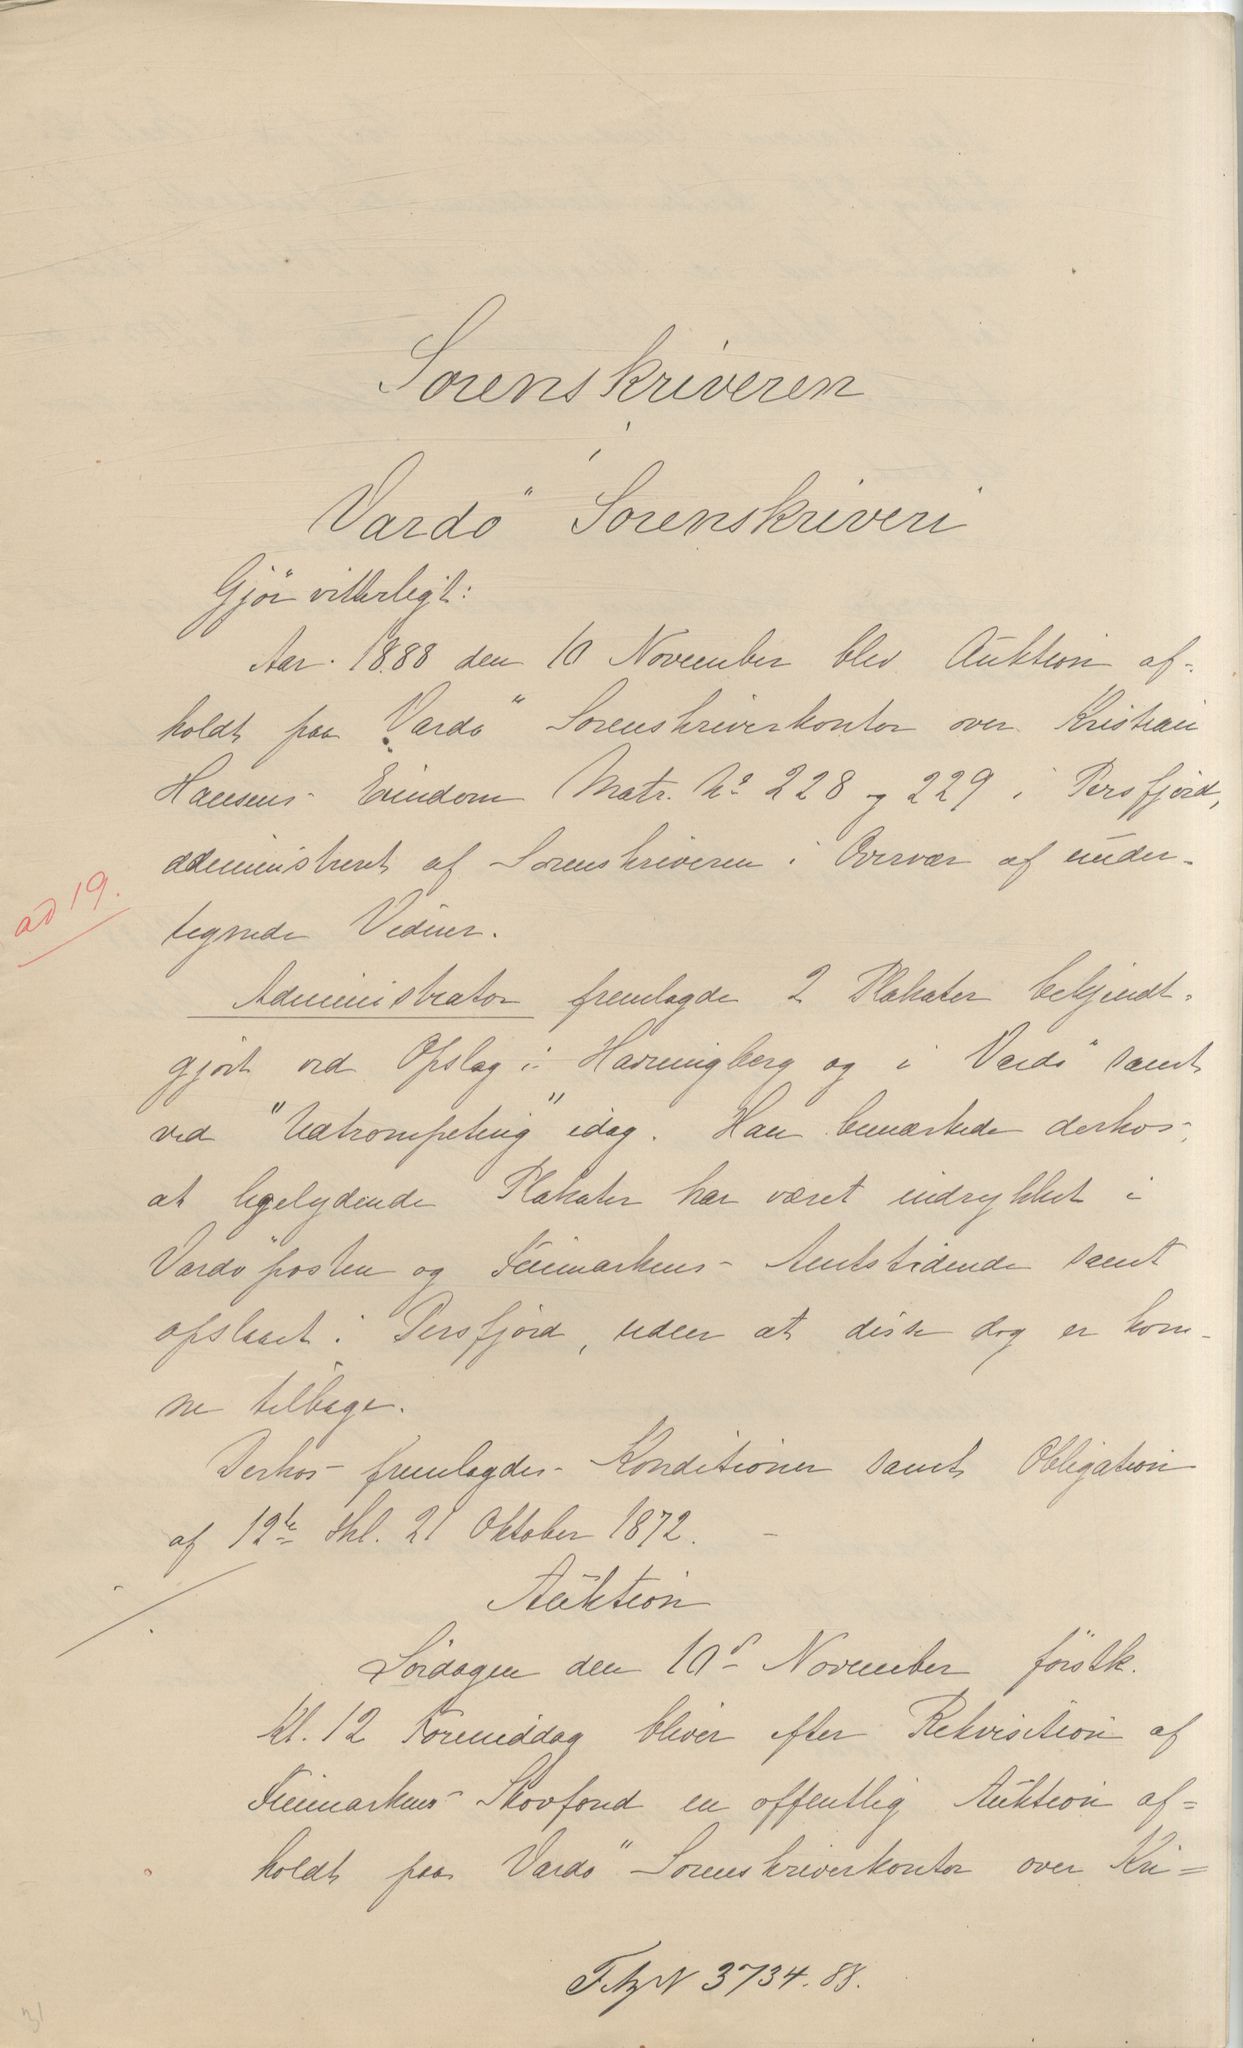 Sorenskriveren
i
Vardö Sorenskriveri
Gjör vitterligt:
Aar 1888 den 10 November blev Auktion af-
holdt paa Vardö Sorenskriverkontor over Kristian
Hansens Eiendom Matr. No 228 og 229 i Persfjord,
administreret af Sorenskriveren i Overvær af under-
tegnede Vidner.
ad 19.
Administrator fremlagde 2 Plakater bekjendt-
gjort ved Opslag i Havningberg og i Vardö samt
ved "Udtrompeting" idag. Han bemærkede derhos,
at ligelydende Plakater har været indrykket i
Vardöposten og Finmarkens Amtstidende samt
opslaaet i Persfjord, uden at disse dog er kom-
ne tilbage.
Derhos fremlagdes Konditioner samt Obligation
af 12te thl. 21 Oktober 1872.
Auktion
Lördagen den 10d November förstk.
Kl. 12 Formiddag bliver efter Rekvisition af
Finmarkens Skovfond en offentlig Auktion af=
holdt paa Vardö Sorenskriverkontor over Kri=
3734.88.
31